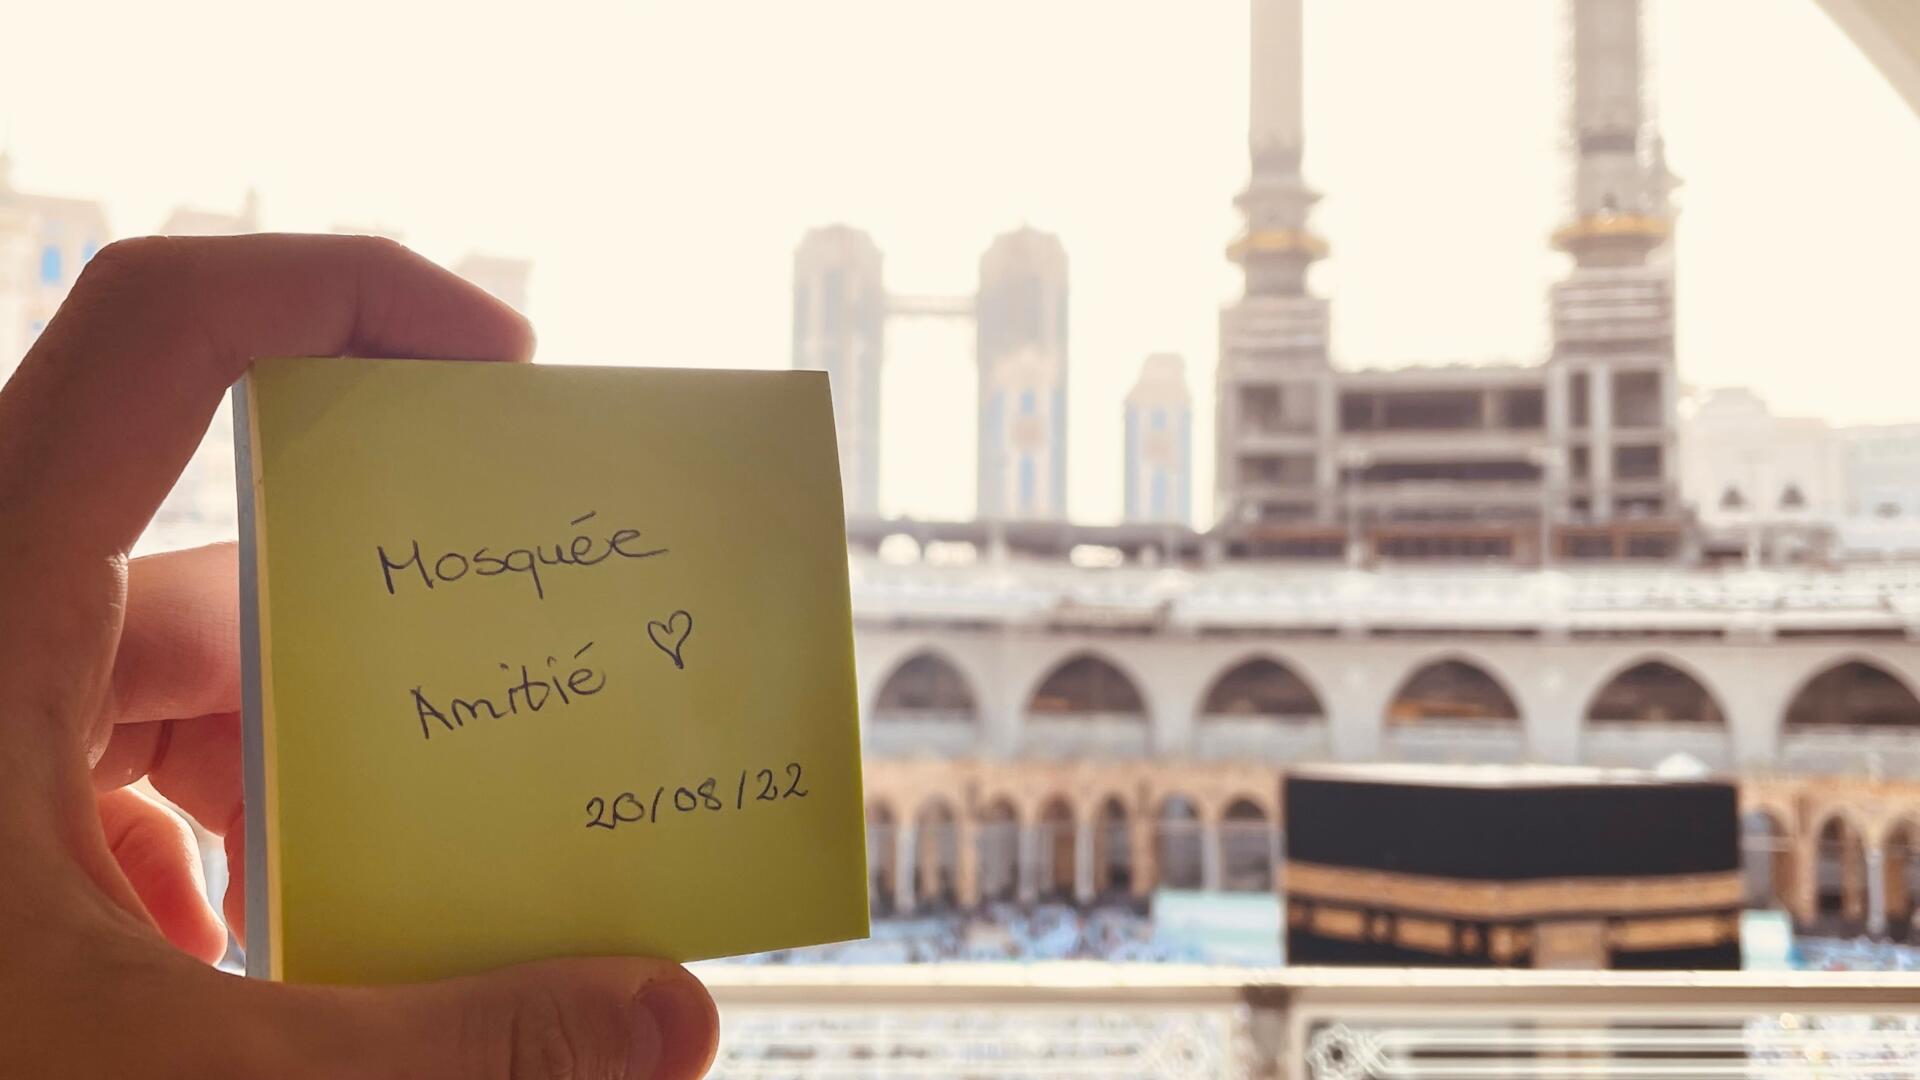 Mosquée
Amitié ♡
20/08/22